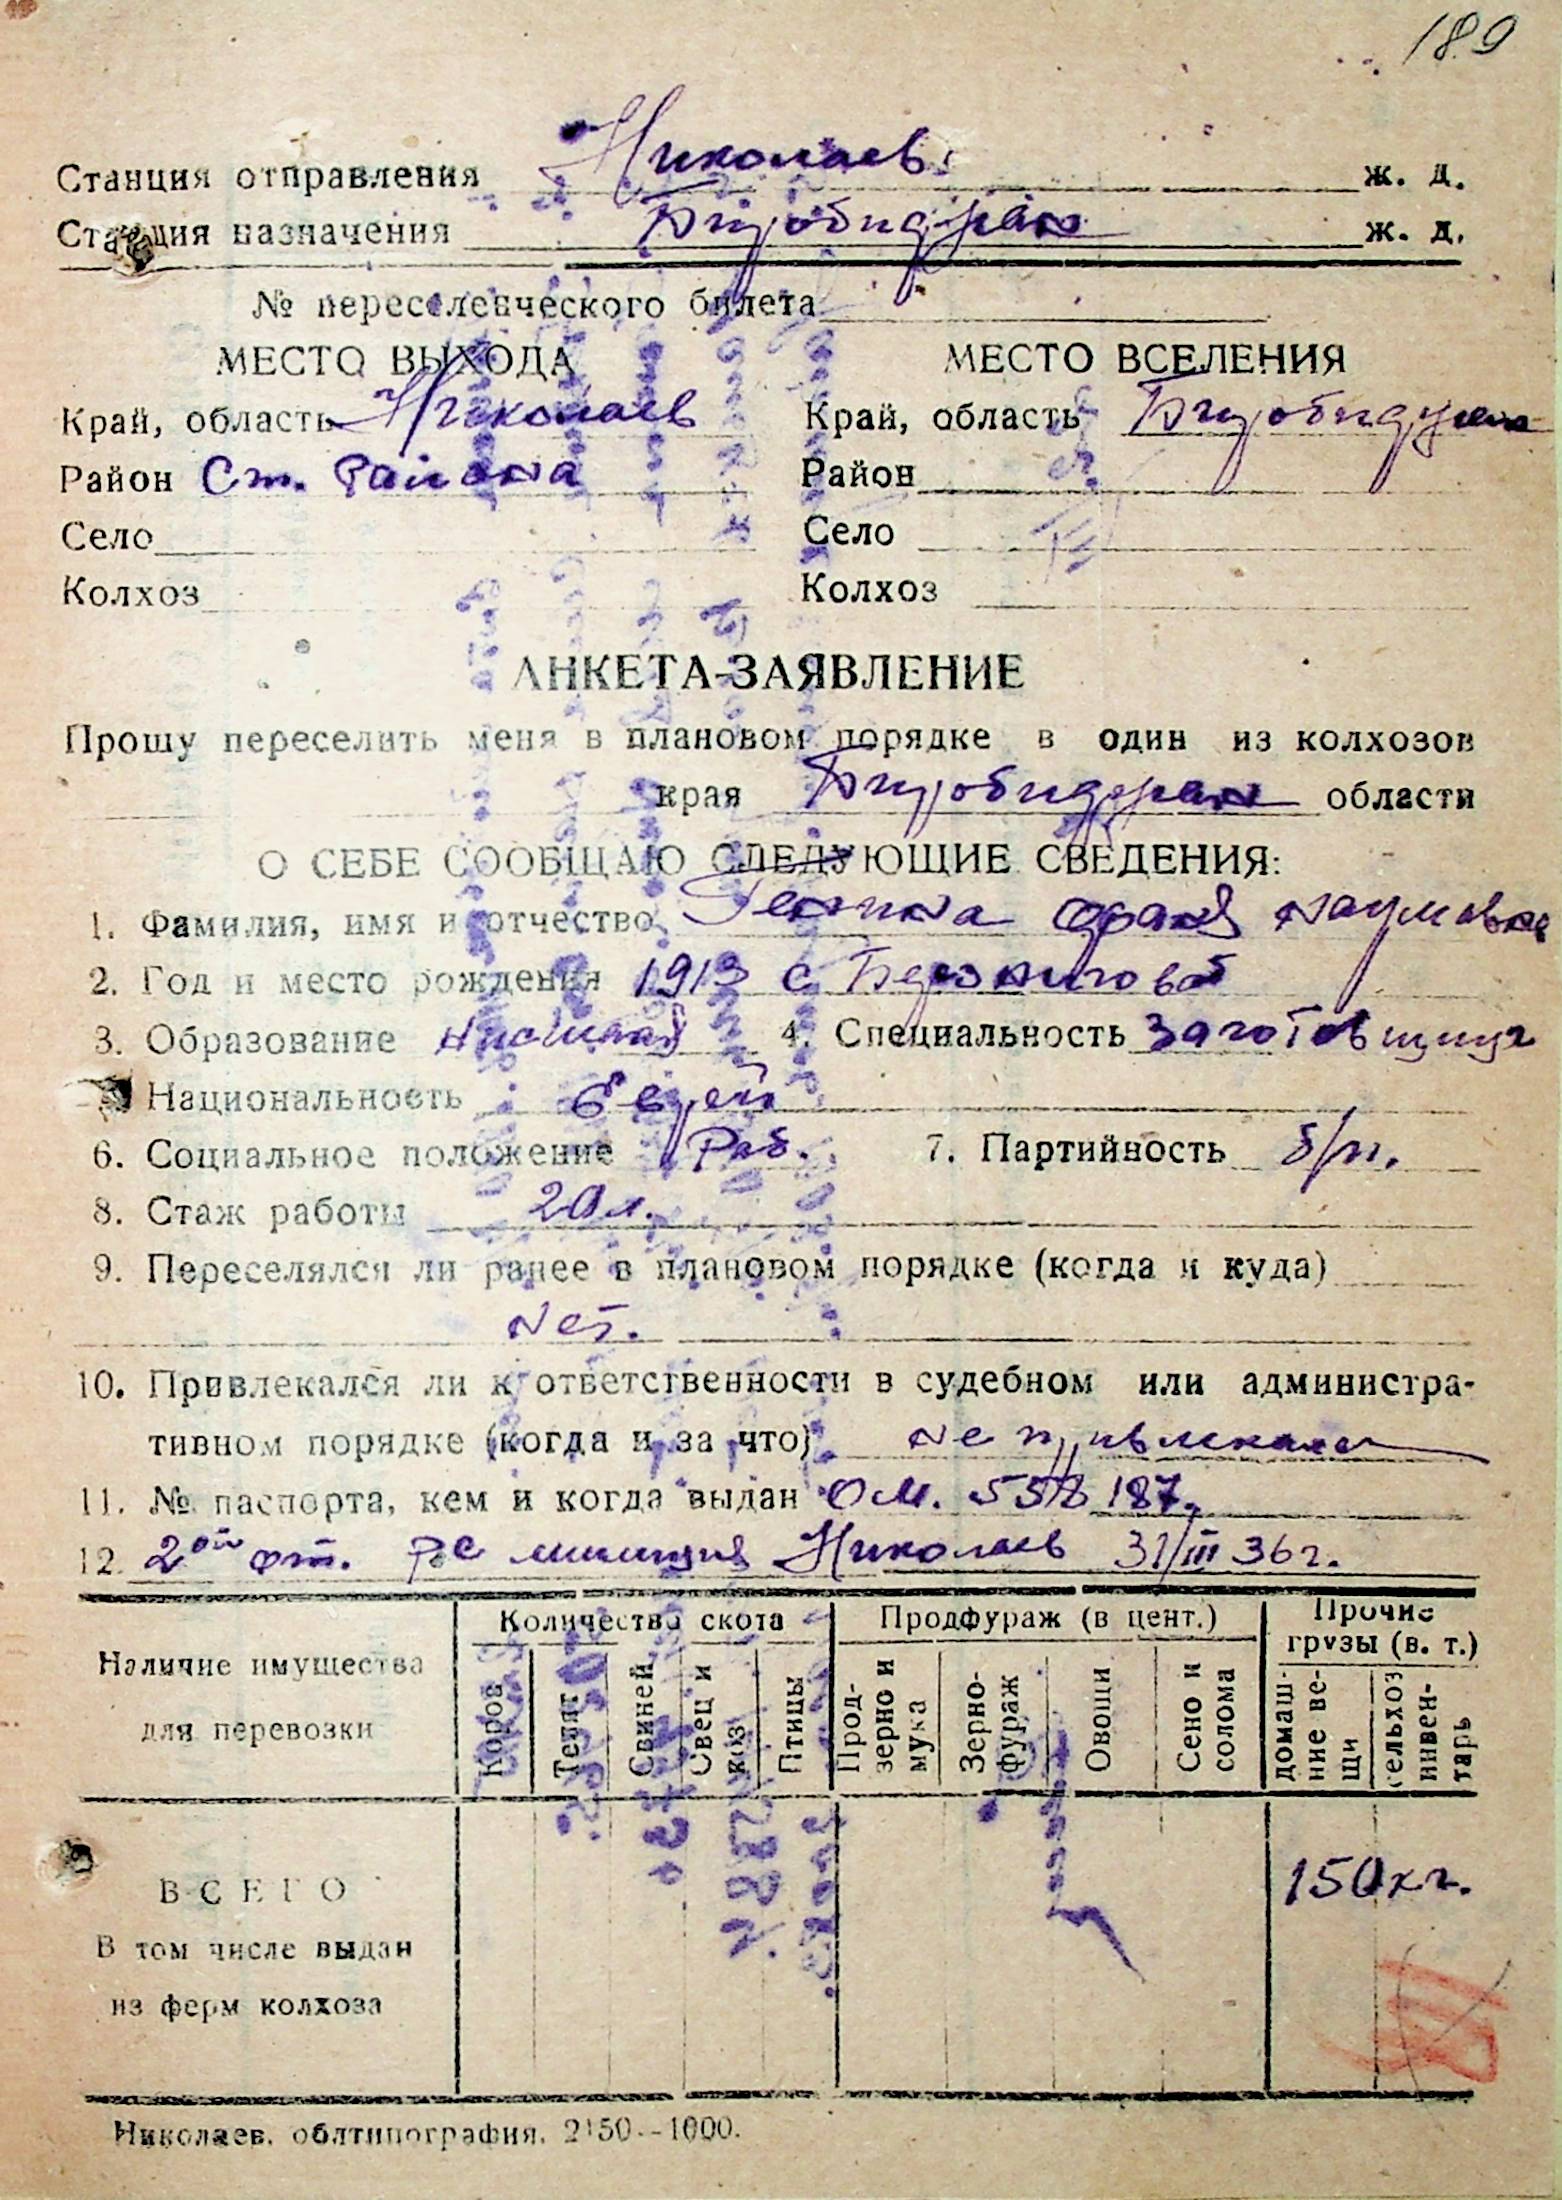 189
Станция отправления Николаев ж. д.
Станция назначения Биробиджан ж. д.
№ переселенческого билета
МЕСТО ВЫХОДА
Край, область Николаев
Район Ст. района
Село
Колхоз
МЕСТО ВСЕЛЕНИЯ
Край, область Биробиджан
Район
Село
Колхоз
АНКЕТА-ЗАЯВЛЕНИЕ
Прошу переселить меня в плановом порядке в один из колхозов
края Биробиджан области
О СЕБЕ СООБЩАЮ СЛЕДУЮЩИЕ СВЕДЕНИЯ:
1. Фамилия, имя и отчество Наумовна
2. Год и место рождения 1913 с
3. Образование 4. Специальность Заготовщица
Национальность Еврей
6. Социальное положение Раб. 7. Партийность б/п.
8. Стаж работы 20 л.
9. Переселялся ли ранее в плановом порядке (когда и куда)
Нет.
10. Привлекался ли к ответственности в судебном или администра-
тивном порядке (когда и за что) не привлекалась
11. № паспорта, кем и когда выдан 187.
12. 2ой от. милиция Николаев 31/III 36 г.
Наличие имущества
для перевозки
Количество скота
Коров
Телят
Свиней
Овец и
коз
Птицы
Продфураж (в цент.)
Прод-
зерно и
мука
Зерно-
фураж
Овощи
Сено и
солома
Прочие
грузы (в. т.)
домаш-
ние ве-
щи
сельхоз
инвен-
тарь
ВСЕГО
В том числе выдан
из ферм колхоза
150 кг.
Николаев, облтипография, 2150--1000.